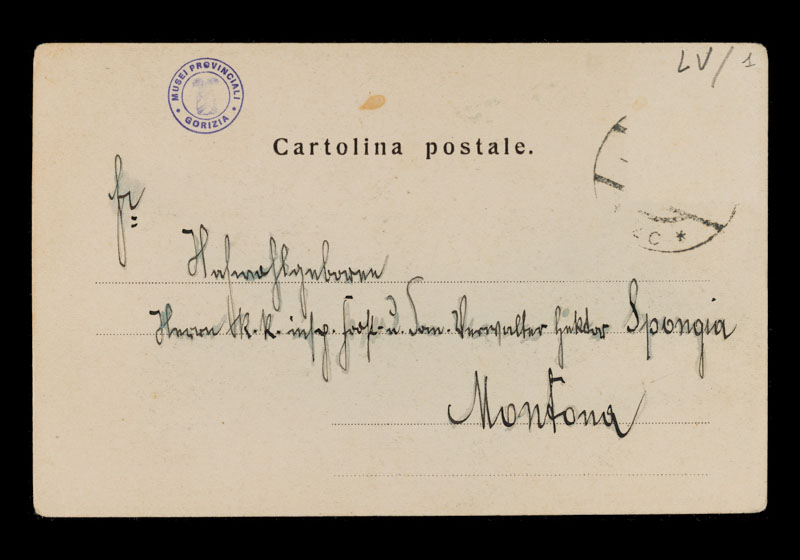 LV/1
MUSEI PROVINCIALI
GORIZIA
Cartolina postale.
Fr
Hochwohlgeboren
Herrn K. K. insp. Forst- u. Dom. Verwalter Hektor Spongia
Montona